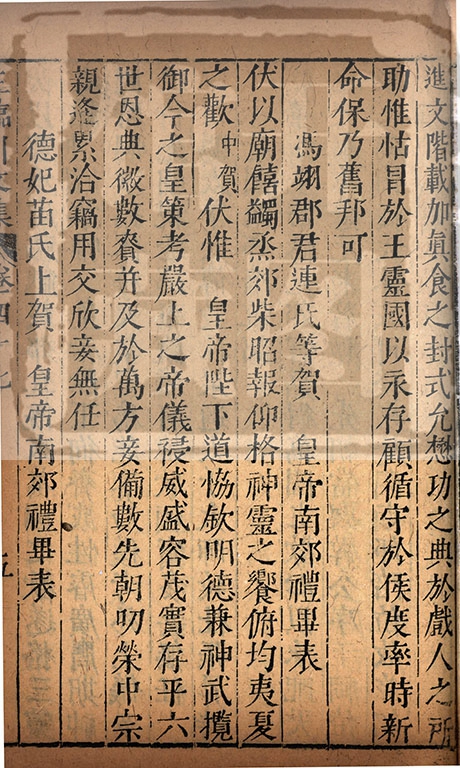 進文階載加眞食之封式允懋功之典於戲人之所
助惟怙冒於王靈國以永存顧循守於侯度率時新
命保乃舊邦可
馮翊郡君連氏等賀 皇帝南郊禮畢表
伏以廟饎蠲烝郊柴昭報仰格神靈之饗俯均夷夏
之歡中賀伏惟 皇帝陛下道恊欽明德兼神武攬
御今之皇策考嚴上之帝儀禔威盛容茂實存乎六
世恩典微數賚并及於萬方妾備數先朝叨榮中宗
親逢累洽竊用交欣妾無任
德妃苗氏上賀 皇帝南郊禮畢表
王臨川文集 卷四十七 五